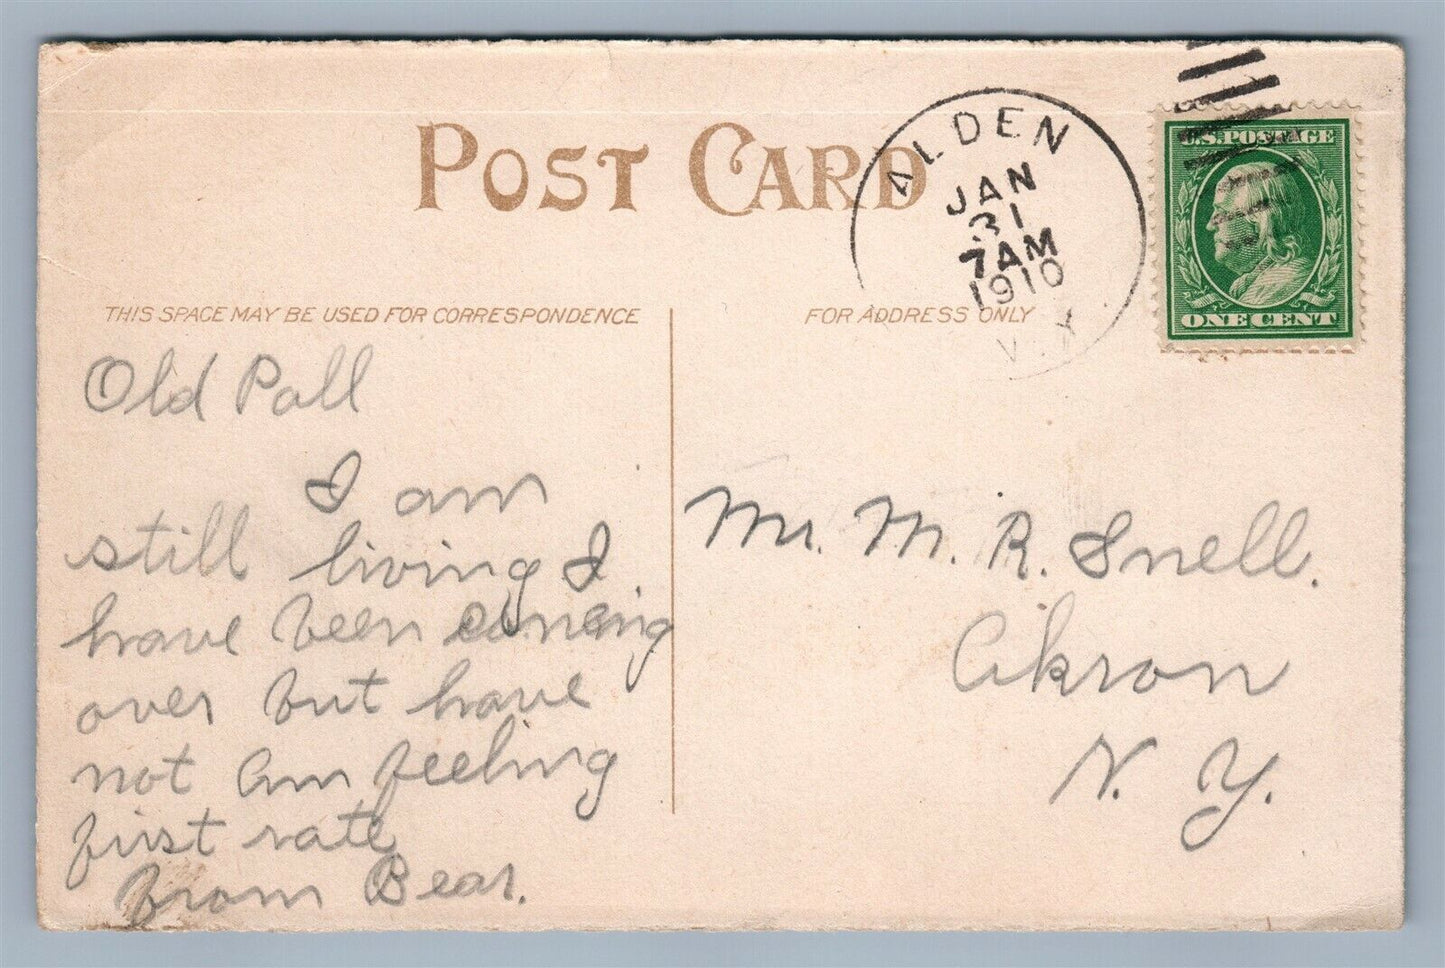 POST CARD
ALDEN
JAN
31
7 AM
1910
N.Y.
U.S. POSTAGE
ONE CENT
THIS SPACE MAY BE USED FOR CORRESPONDENCE
FOR ADDRESS ONLY
Old Pall
I am
still living I
have been coming
over but have
not Am feeling
first rate
from Bear.
Mr. M. R. Snell.
Akron
N. Y.